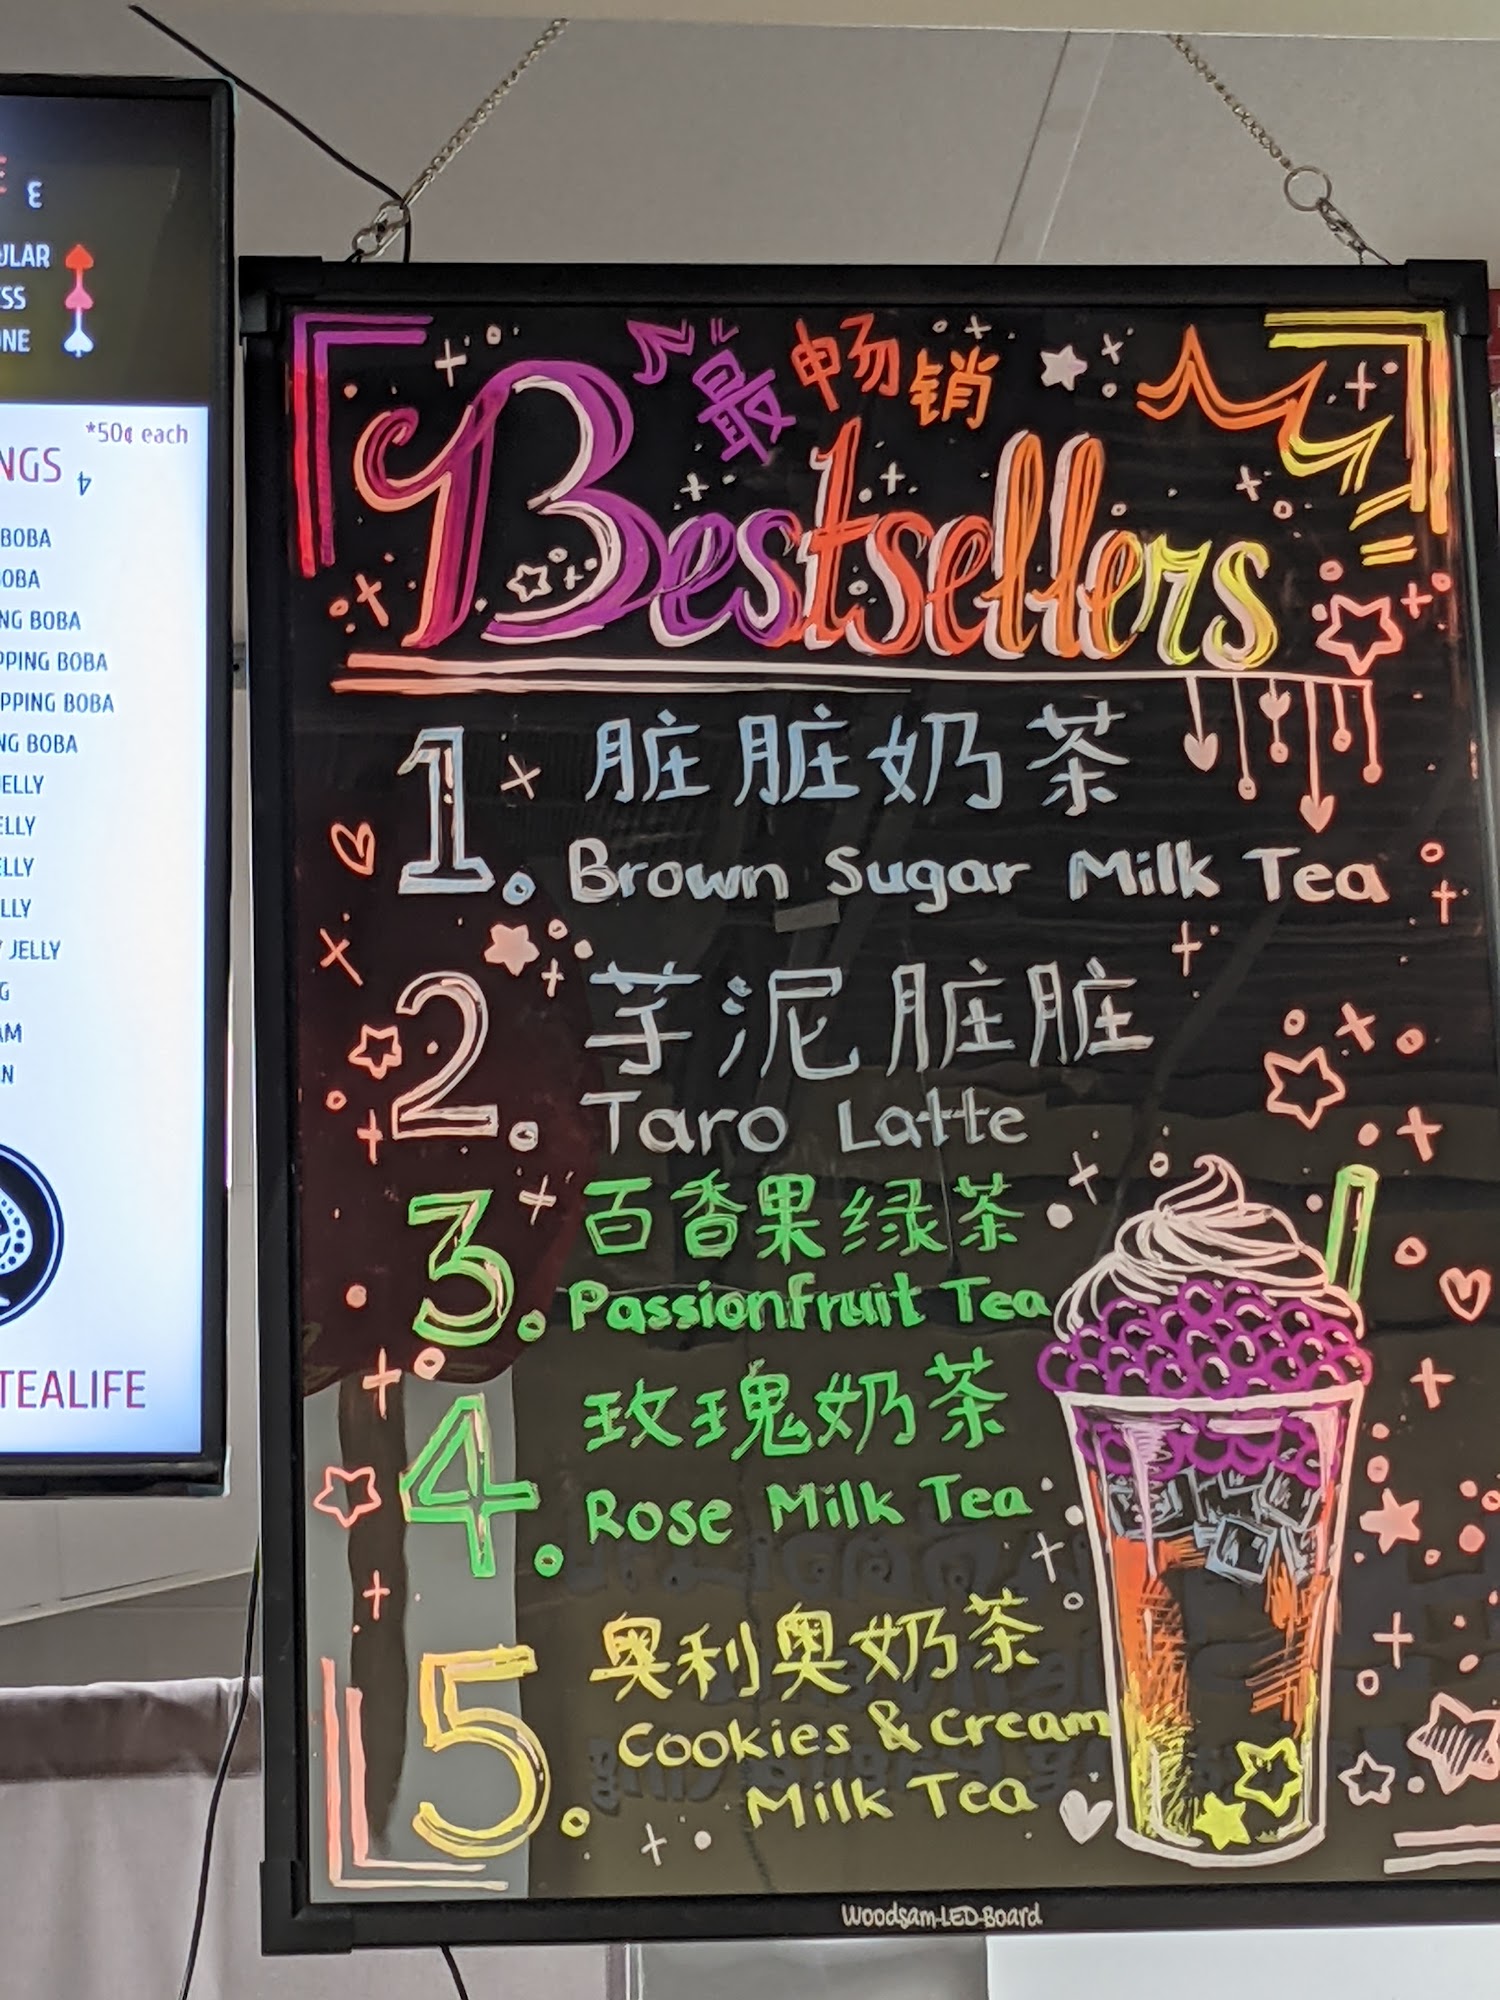 ε
*50¢ each
NGS 4
BOBA
BOBA
NG BOBA
PPING BOBA
PPING BOBA
NG BOBA
JELLY
JELLY
JELLY
JELLY
JELLY
TEALIFE
最畅销
Bestsellers
1. 脏脏奶茶
Brown Sugar Milk Tea
2. 芋泥脏脏
Taro Latte
3. 百香果绿茶
Passionfruit Tea
4. 玫瑰奶茶
Rose Milk Tea
5. 奥利奥奶茶
Cookies & Cream
Milk Tea
Woodsam-LED-Board